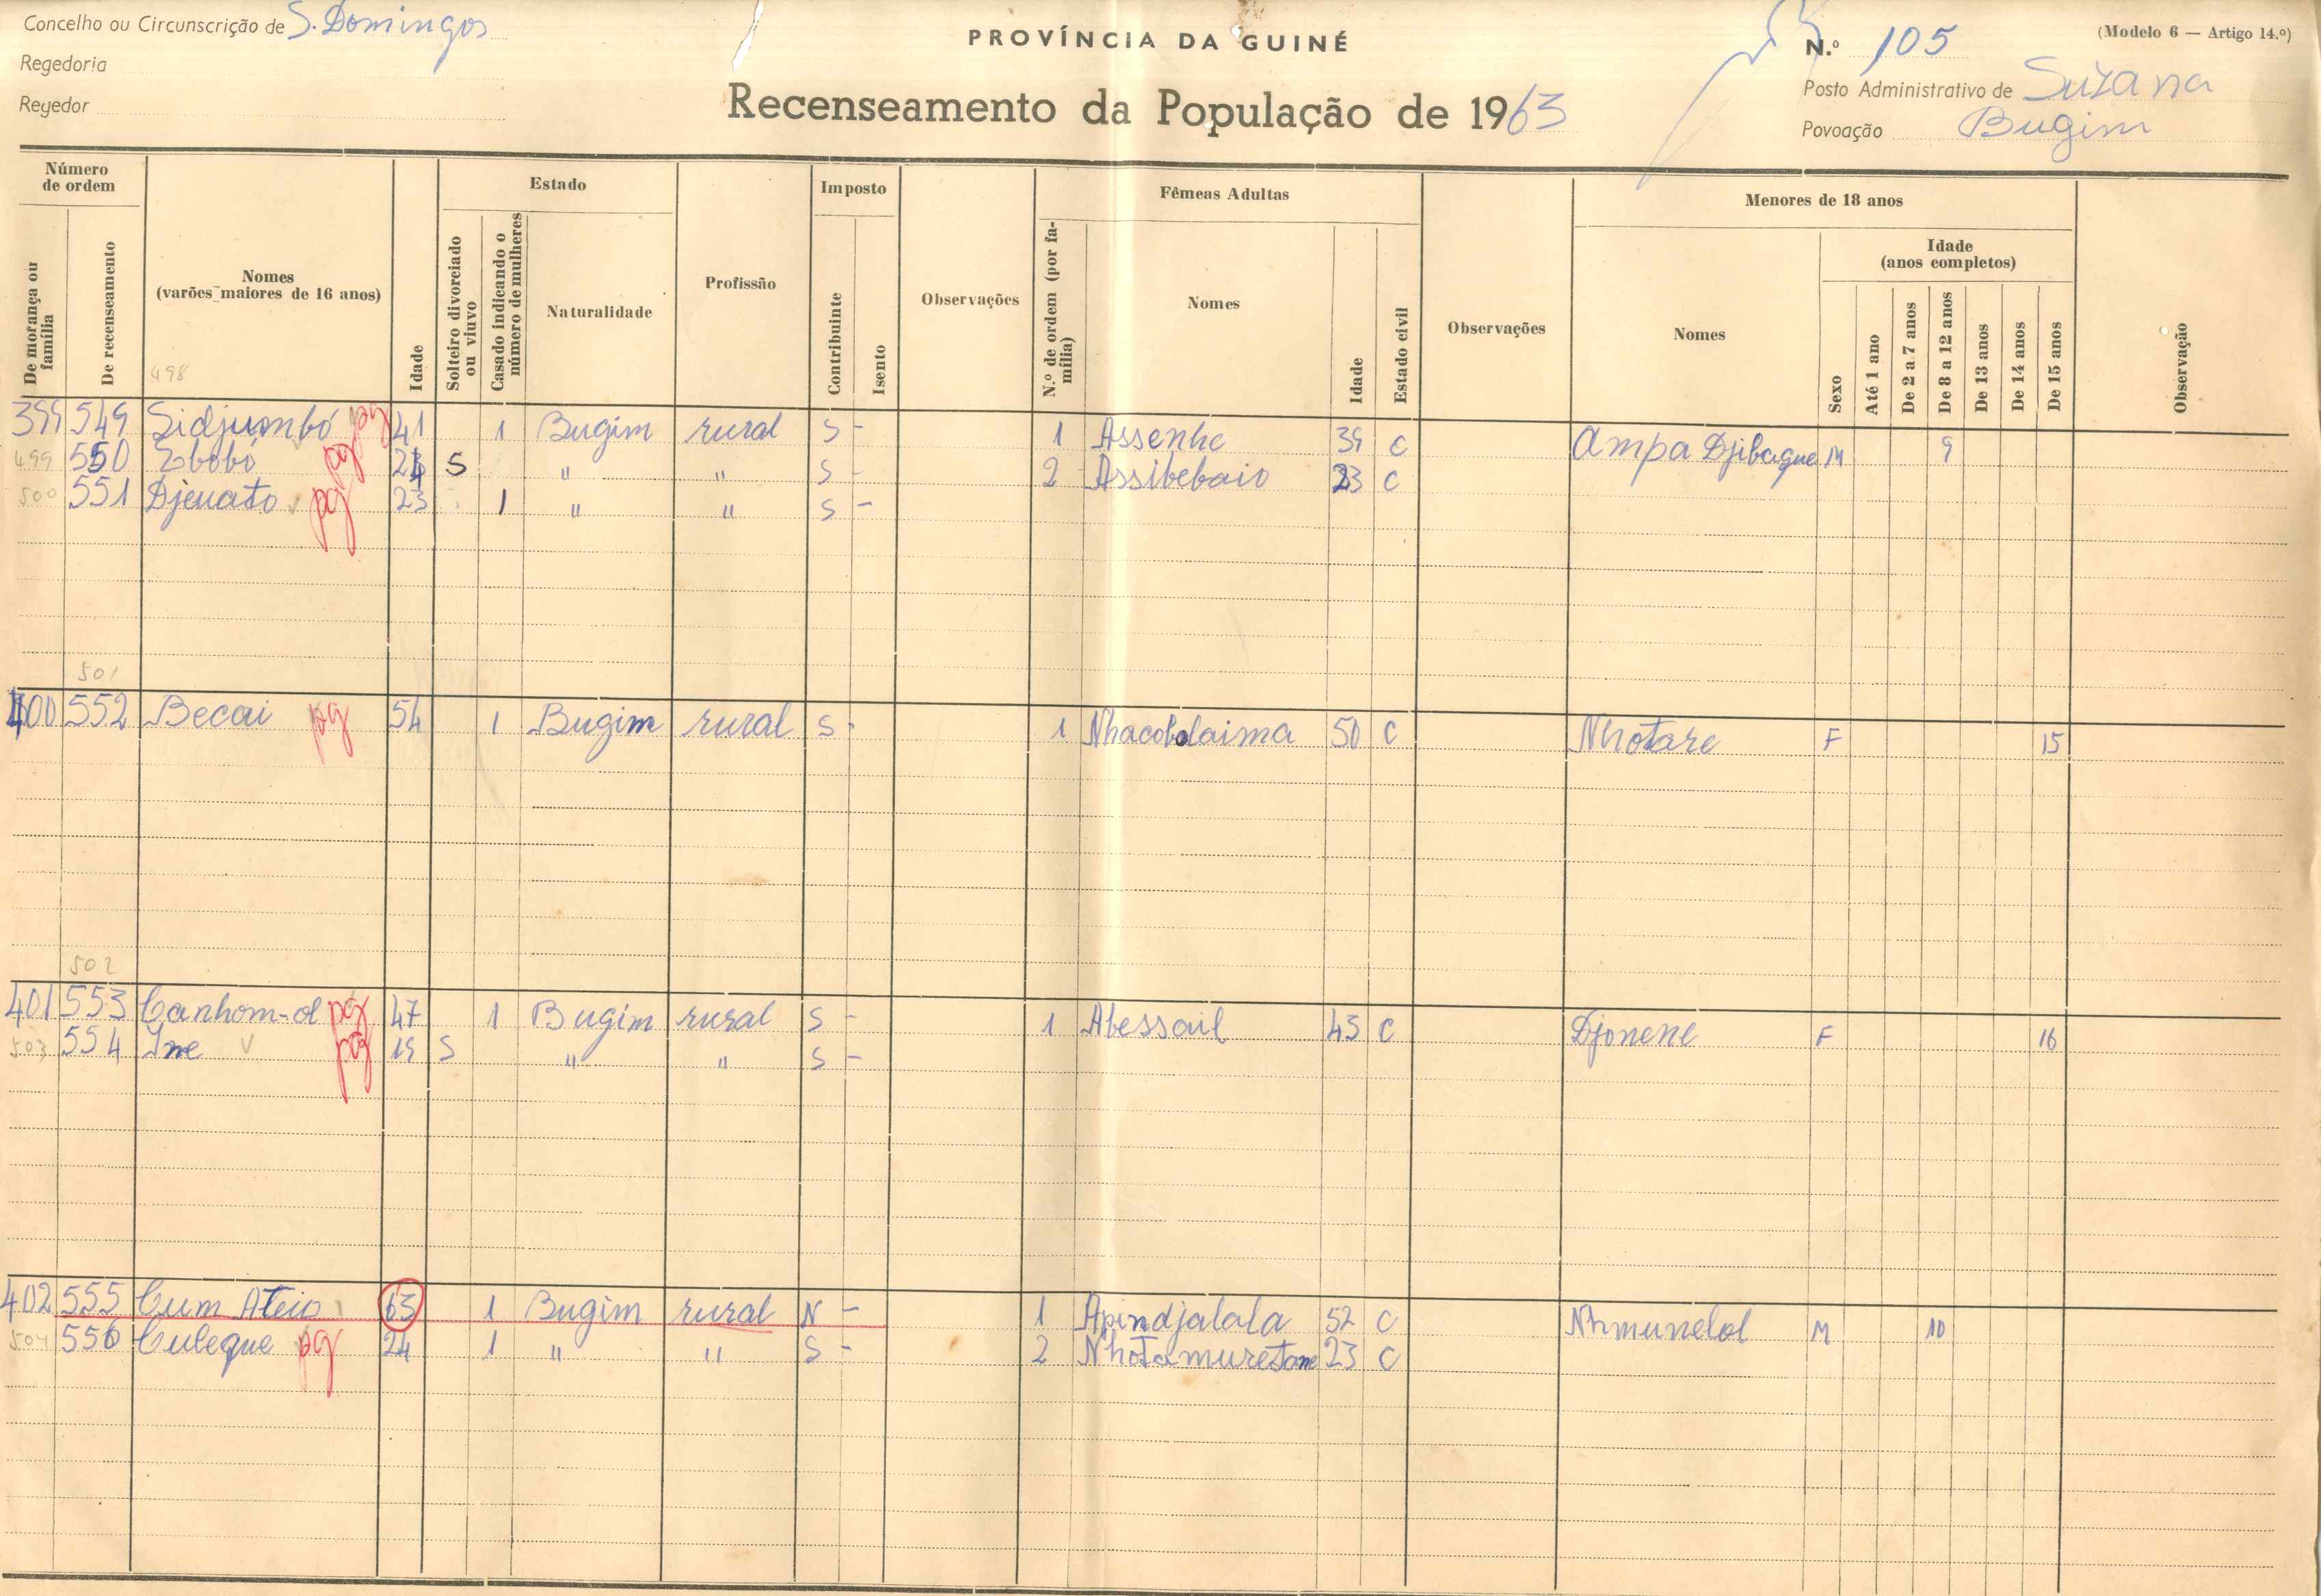 Concelho ou Circunscrição de S. Domingos
PROVÍNCIA DA GUINÉ
N.º 105
(Modelo 6 — Artigo 14.º)
Regedoria
Regedor
Recenseamento da População de 1963
Posto Administrativo de Suzana
Povoação Bugim
Número de ordem
De morança ou família
De recenseamento
Nomes
(varões maiores de 16 anos)
Idade
Estado
Solteiro divorciado ou viuvo
Casado indicando o número de mulheres
Naturalidade
Profissão
Imposto
Contribuinte
Isento
Observações
Fêmeas Adultas
N.º de ordem (por família)
Nomes
Idade
Estado civil
Observações
Menores de 18 anos
Nomes
Sexo
Idade
(anos completos)
Até 1 ano
De 2 a 7 anos
De 8 a 12 anos
De 13 anos
De 14 anos
De 15 anos
Observação
498
399 549 Sidjumbó pg 41 1 Bugim rural S - 1 Assenhe 39 C Ampa Djibaque M 9
499 550 pg 24 S " " S - 2 Assibebaio 23 C
500 551 Djenato pg 23 1 " " S -
501
400 552 Becai pg 54 1 Bugim rural S - 1 50 C Nhotare F 15
502
401 553 Canhom-ol pg 47 1 Bugim rural S - 1 Abessail 43 C Djonene F 16
503 554 Ine V pg 19 S " " S -
402 555 Cum Ateio 63 1 Bugim rural N - 1 Apindjalala 52 C Nhmunelol M 10
504 556 Culeque pg 24 1 " " S - 2 Nhotamuretane 23 C